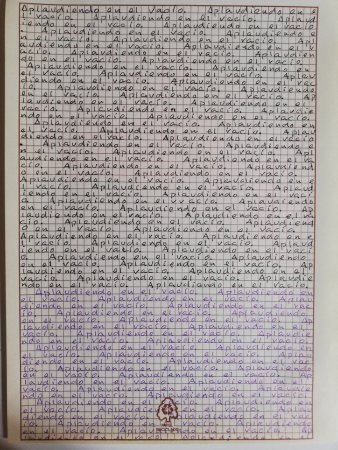 Aplaudiendo en el vacío. Aplaudiendo en e
l vacío. Aplaudiendo en el vacío. Aplaud
iendo en el vacío. Aplaudiendo en el vací
o. Aplaudiendo en el vacío. Aplaudiendo
en el vacío. Aplaudiendo en el vacío. Apl
audiendo en el vacío. Aplaudiendo en el v
acío. Aplaudiendo en el vacío. Aplaudien
do en el vacío. Aplaudiendo en el vacío.
Aplaudiendo en el vacío. Aplaudiendo en
el vacío. Aplaudiendo en el vacío. Aplau
diendo en el vacío. Aplaudiendo en el vac
ío. Aplaudiendo en el vacío. Aplaudiendo
en el vacío. Aplaudiendo en el vacío. Ap
laudiendo en el vacío. Aplaudiendo en el
vacío. Aplaudiendo en el vacío. Aplaudie
ndo en el vacío. Aplaudiendo en el vacío.
Aplaudiendo en el vacío. Aplaudiendo en e
l vacío. Aplaudiendo en el vacío. Aplaud
iendo en el vacío. Aplaudiendo en el vací
o. Aplaudiendo en el vacío. Aplaudiendo
en el vacío. Aplaudiendo en el vacío. Apl
audiendo en el vacío. Aplaudiendo en el v
acío. Aplaudiendo en el vacío. Aplaudien
do en el vacío. Aplaudiendo en el vacío.
Aplaudiendo en el vacío. Aplaudiendo en
el vacío. Aplaudiendo en el vacío. Aplau
diendo en el vacío. Aplaudiendo en el vac
ío. Aplaudiendo en el vacío. Aplaudiendo
en el vacío. Aplaudiendo en el vacío. Ap
laudiendo en el vacío. Aplaudiendo en el
vacío. Aplaudiendo en el vacío. Aplaudie
ndo en el vacío. Aplaudiendo en el vacío.
Aplaudiendo en el vacío. Aplaudiendo en e
l vacío. Aplaudiendo en el vacío. Aplaud
iendo en el vacío. Aplaudiendo en el vací
o. Aplaudiendo en el vacío. Aplaudiendo
en el vacío. Aplaudiendo en el vacío. Apl
audiendo en el vacío. Aplaudiendo en el v
acío. Aplaudiendo en el vacío. Aplaudien
do en el vacío. Aplaudiendo en el vacío.
Aplaudiendo en el vacío. Aplaudiendo en
el vacío. Aplaudiendo en el vacío. Aplau
diendo en el vacío. Aplaudiendo en el vac
ío. Aplaudiendo en el vacío. Aplaudiendo
en el vacío. Aplaudiendo en el vacío. Ap
laudiendo en el vacío. Aplaudiendo en el
vacío. Aplaudiendo en el vacío. Aplaudie
ndo en el vacío. Aplaudiendo en el vacío.